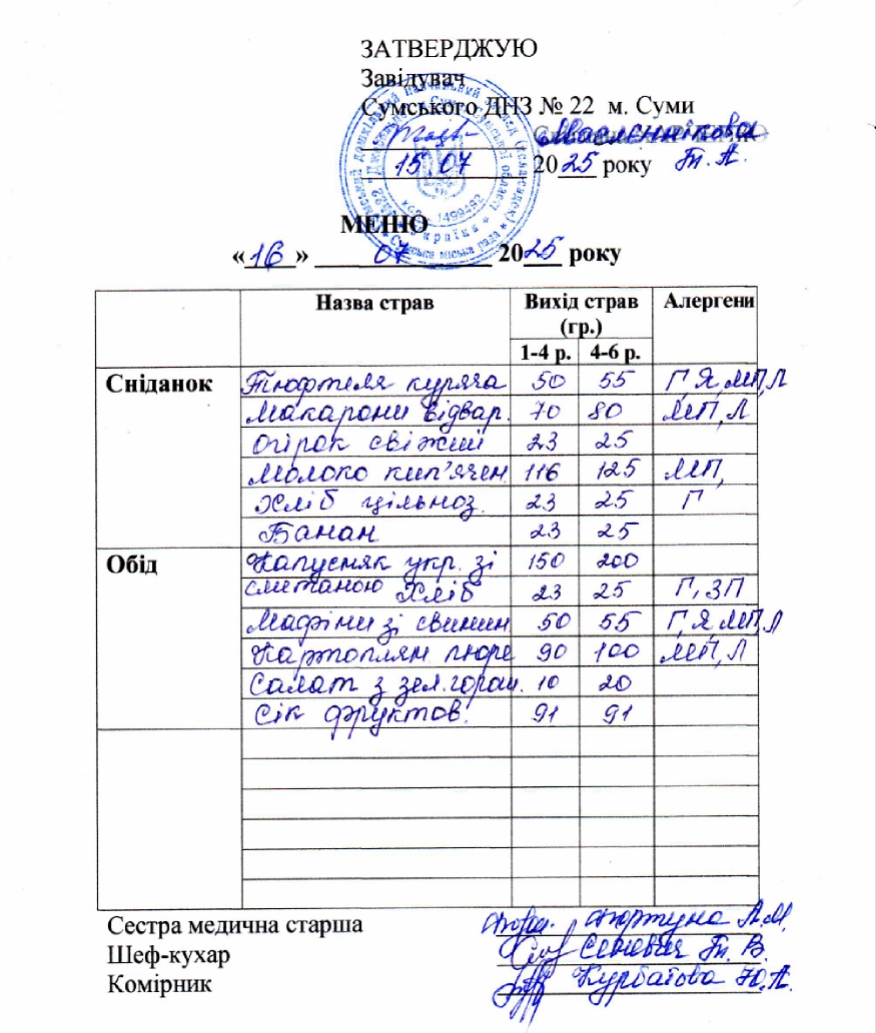 ЗАТВЕРДЖУЮ
Завідувач
Сумського ДНЗ № 22 м. Суми
Масленнікова
15.07 2025 року Т. А.
МЕНЮ
«16» 07 2025 року
Назва страв Вихід страв (гр.) Алергени
1-4 р. 4-6 р.
Сніданок Тюфтеля куряча 50 55 Г, Я, МП, Л
Макарони відвар. 70 80 МП, Л
Огірок свіжий 23 25
Молоко кип'ячен 116 125 МП,
Хліб цільноз. 23 25 Г
Банан 23 25
Обід Капусняк укр. зі 150 200
сметаною Хліб 23 25 Г, ЗП
Мафіни зі свинин 50 55 Г, Я, МП, Л
Картоплян пюре 90 100 МП, Л
Салат з зел.горош. 10 20
Сік фруктов. 91 91
Сестра медична старша Фортуна Л.М.
Шеф-кухар Сеневич Т. В.
Комірник Курбатова Ю.А.